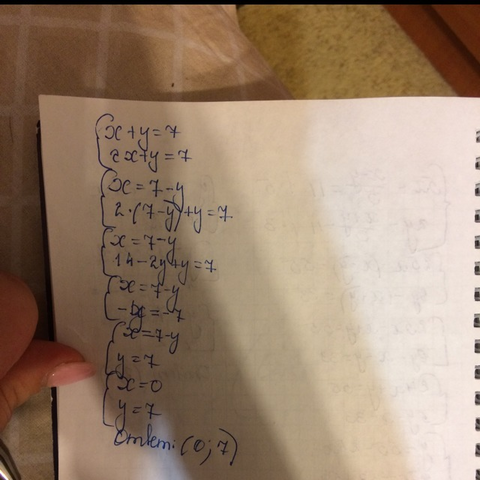 x+y=7
2x+y=7
x=7-y
2·(7-y)+y=7
x=7-y
14-2y+y=7
x=7-y
-y=-7
x=7-y
y=7
x=0
y=7
Ответ: (0; 7)